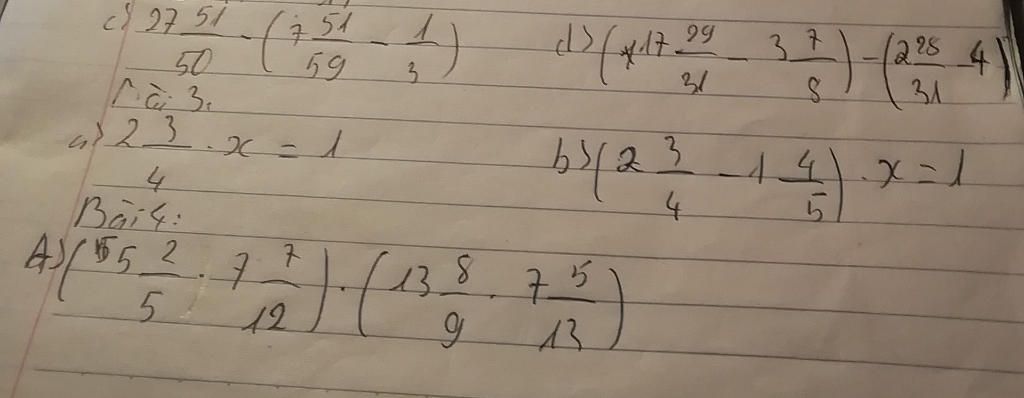 c) 27 51/50 - (7 51/59 - 1/3) d) (17 29/31 - 3 7/8) - (2 28/31 - 4)
Bài 3:
a) 2 3/4 . x = 1 b) (2 3/4 - 1 4/5) . x = 1
Bài 4:
A) (5 2/5 . 7 7/12) . (13 8/9 . 7 5/13)